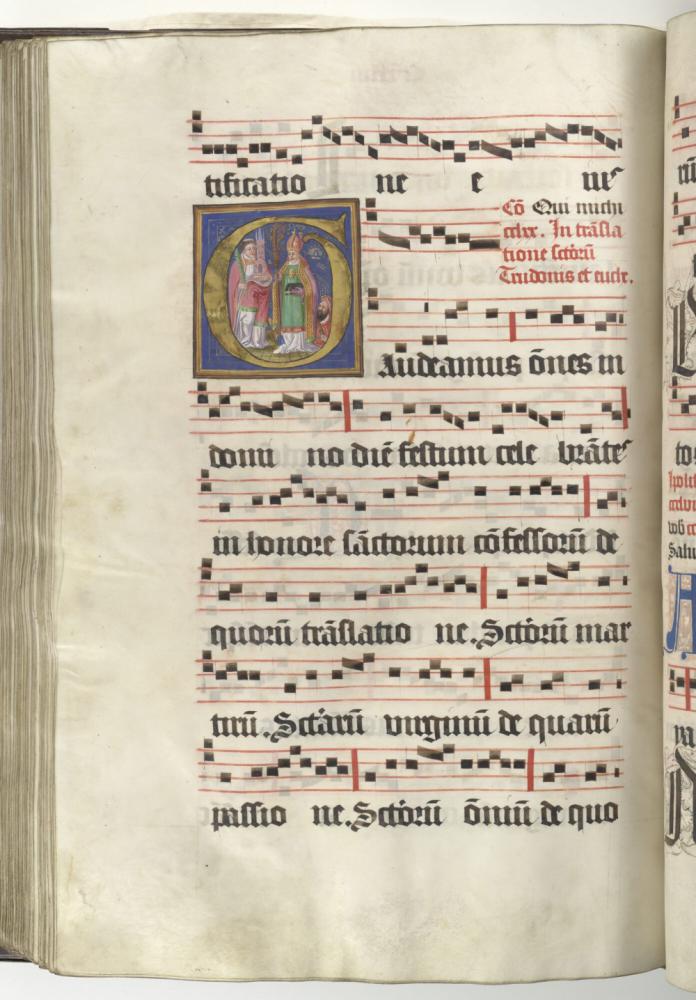 tificatio ne e ius
Cō Qui michi
cclxx. In trāsla
tione sctōrū
Trudonis et euch̄.
Audeamus ōnes in
domi no diē festum cele brāte᷒
in honore sāctorum cōfessorū de
quorū trāslatio ne. Sctōrū mar
tirū. Sctārū virginū de quarū
passio ne. Sctōrū ōniū de quo